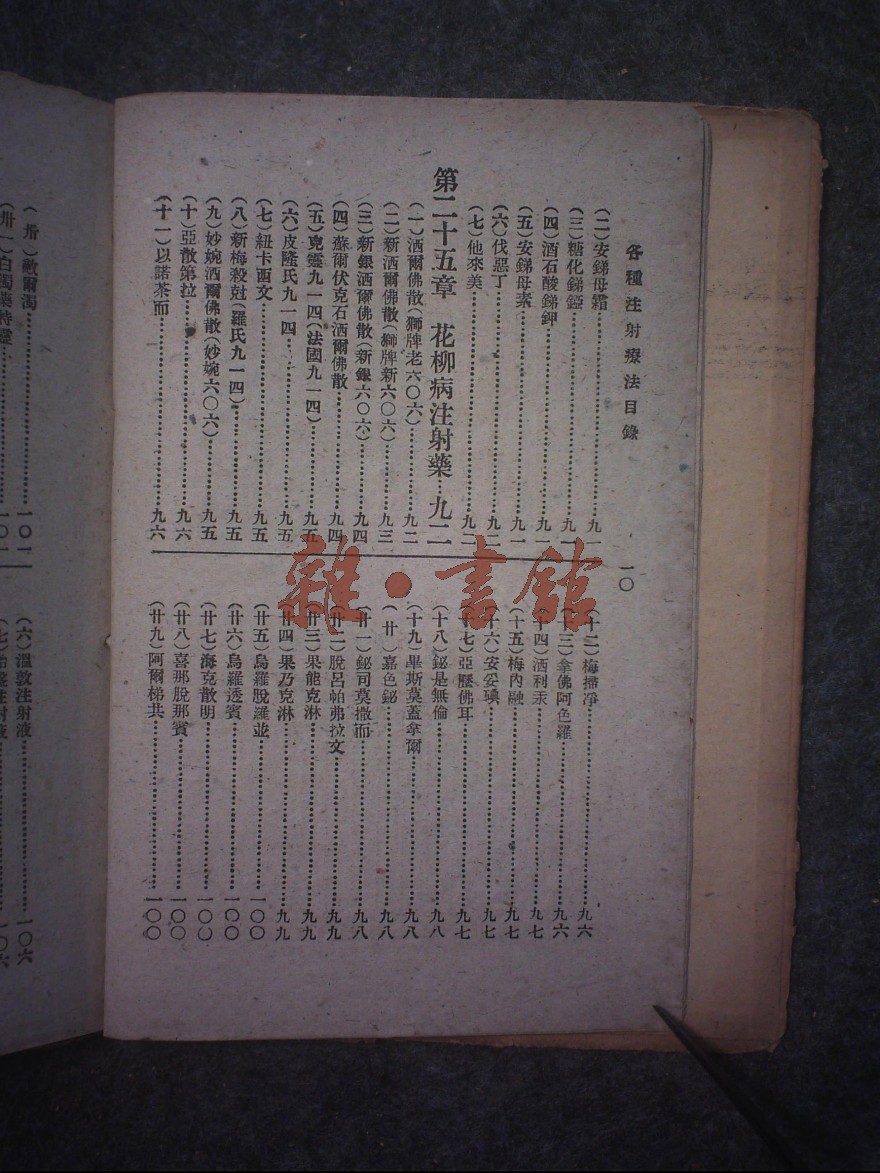 各種注射療法目錄
一〇
(二)安銻母霜……九一
(三)糖化銻𨧱……九一
(四)酒石酸銻鉀……九一
(五)安銻母素……九一
(六)伐惡丁……九二
(七)他來美……九二
第二十五章 花柳病注射藥…九二
(一)洒爾佛散(獅牌老六〇六)……九二
(二)新洒爾佛散(獅牌新六〇六)……九三
(三)新銀洒爾佛散(新銀六〇六)……九四
(四)蘇爾伏克石洒爾佛散……九四
(五)克靈九一四(法國九一四)……九五
(六)皮隆氏九一四……九五
(七)紐卡西文……九五
(八)新梅殺尅(羅氏九一四)……九五
(九)妙婉洒爾佛散(妙婉六〇六)……九五
(十)亞散第拉……九六
(十一)以諾茶而……九六
(十二)梅掃凈……九六
(十三)拿佛阿色羅……九六
(十四)洒利汞……九七
(十五)梅內融……九七
(十六)安妥碘……九七
(十七)亞歷佛耳……九七
(十八)鉍是無倫……九八
(十九)畢斯莫蓋拿爾……九八
(廿)嘉色鉍……九八
(廿一)鉍司莫撒而……九八
(廿二)脫呂帕弗拉文……九九
(廿三)果能克淋……九九
(廿四)果乃克淋……九九
(廿五)烏羅脫羅並……一〇〇
(廿六)烏羅透賓……一〇〇
(廿七)海克散明……一〇〇
(廿八)喜那脫那賓……一〇〇
(廿九)阿爾梯共……一〇〇
(卅)敵爾濁……一〇一
(卅一)白濁藥特靈……一〇一
(六)溫敦注射液……一〇六
雜·書館